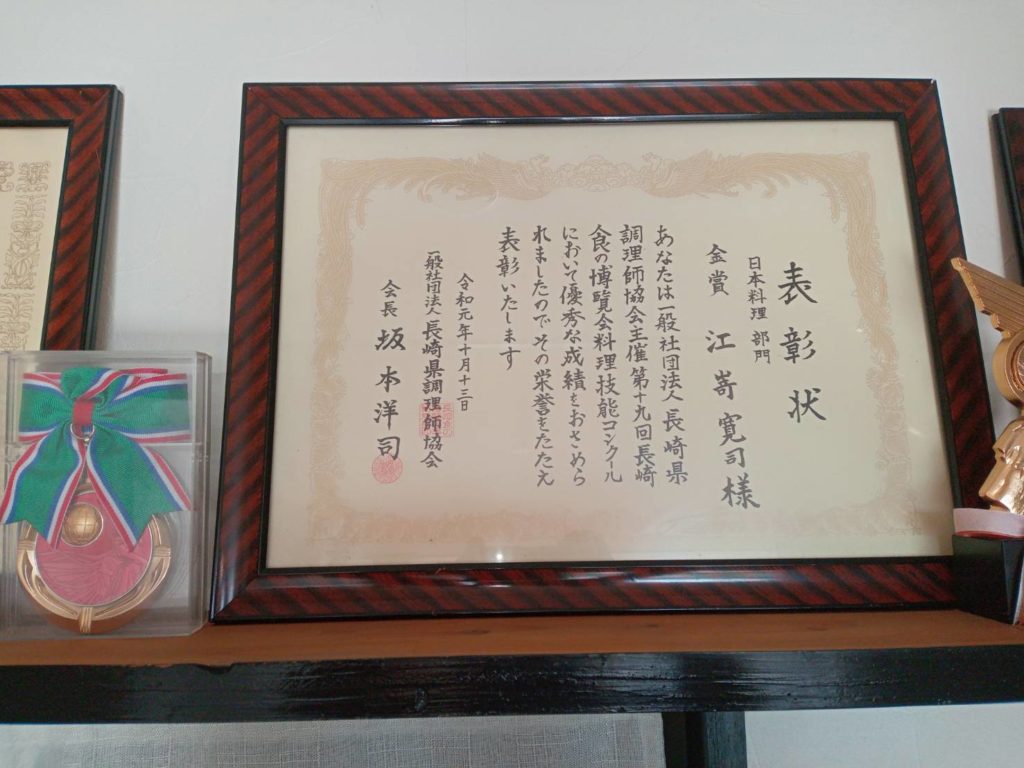 表彰状
日本料理 部門
金賞 江嵜寛司様
あなたは一般社団法人長崎県
調理師協会主催第十九回長崎
食の博覧会料理技能コンクール
において優秀な成績をおさめら
れましたのでその栄誉をたたえ
表彰いたします
令和元年十月十三日
一般社団法人長崎県調理師協会
会長 坂本洋司